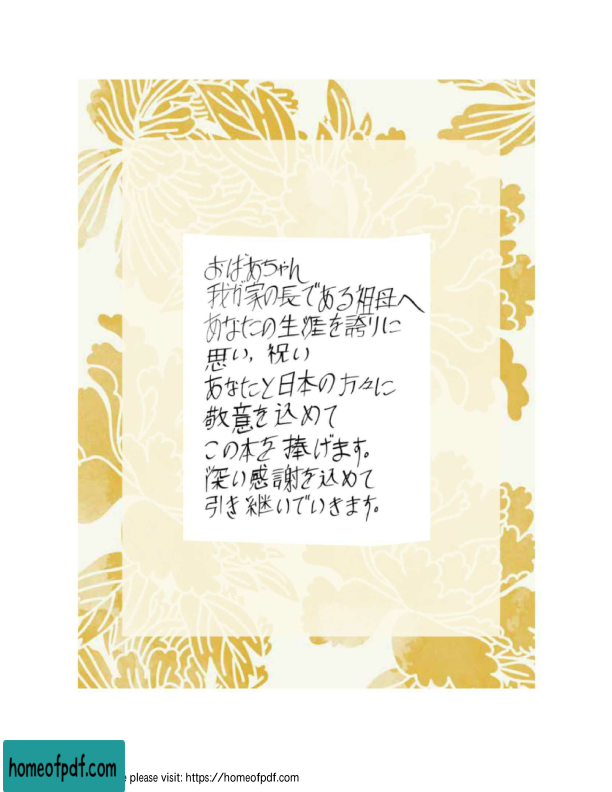 おばあちゃん
我が家の長である祖母へ
あなたの生涯を誇りに
思い, 祝い
あなたと日本の方々に
敬意を込めて
この本を捧げます。
深い感謝を込めて
引き継いでいきます。
homeofpdf.com
e please visit: https://homeofpdf.com